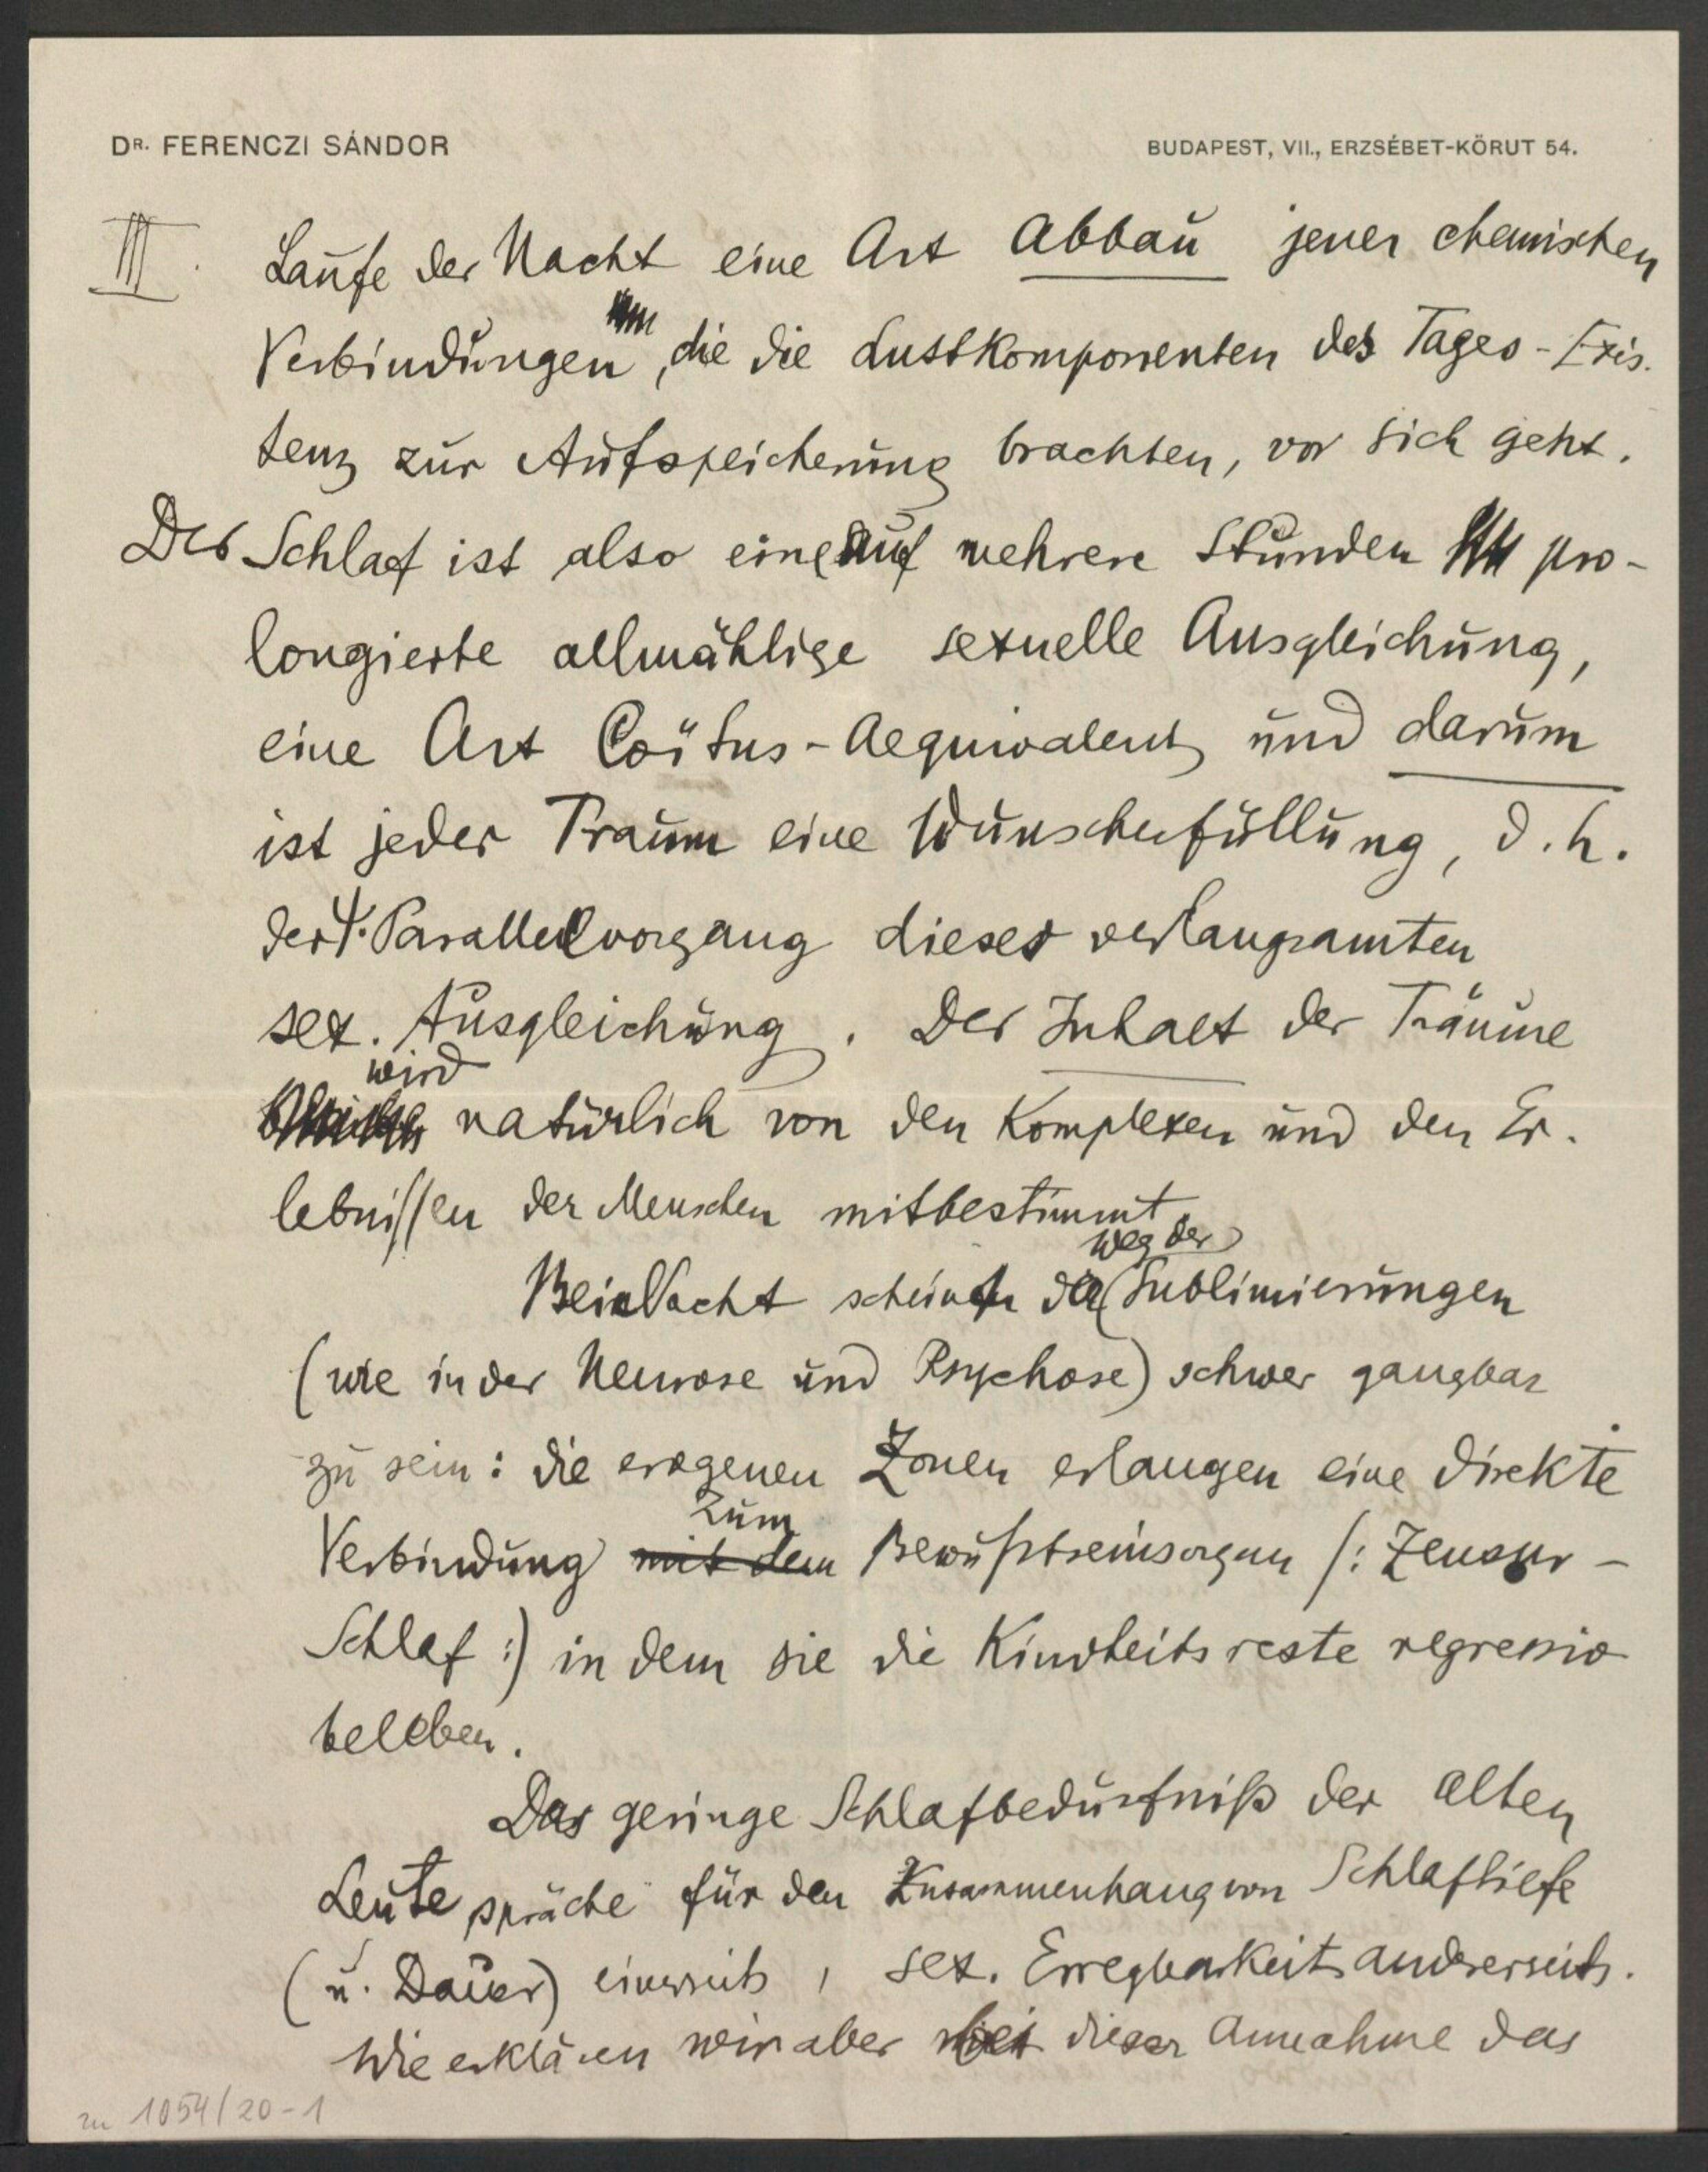 DR. FERENCZI SÁNDOR
BUDAPEST, VII., ERZSÉBET-KÖRUT 54.
III. Laufe der Nacht eine Art Abbau jener chemischen
Verbindungen, die die Lustkomponenten des Tages-Exis-
tenz zur Aufspeicherung brachten, vor sich geht.
Der Schlaf ist also eine auf mehrere Stunden pro-
longierte allmählige sexuelle Ausgleichung,
eine Art Coïtus-Aequivalent, und darum
ist jeder Traum eine Wunscherfüllung, d. h.
der Ψ. Parallelvorgang dieser verlangsamten
sex. Ausgleichung. Der Inhalt der Träume
wird
natürlich von den Komplexen und den Er-
lebnissen der Menschen mitbestimmt.
weg der
Bei Nacht scheint der Sublimierungen
(wie in der Neurose und Psychose) schwer gangbar
zu sein: die erogenen Zonen erlangen eine direkte
zum
Verbindung mit dem Bewußtseinsorgan /: Zensur-
Schlaf :) in dem sie die Kindheitsreste regressiv
beleben.
Das geringe Schlafbedürfniß der alten
Leute spräche für den Zusammenhang von Schlaftiefe
(u. Dauer) einerseits, sex. Erregbarkeit andrerseits.
Wie erklären wir aber bei dieser Annahme das
zu 1054/20-1